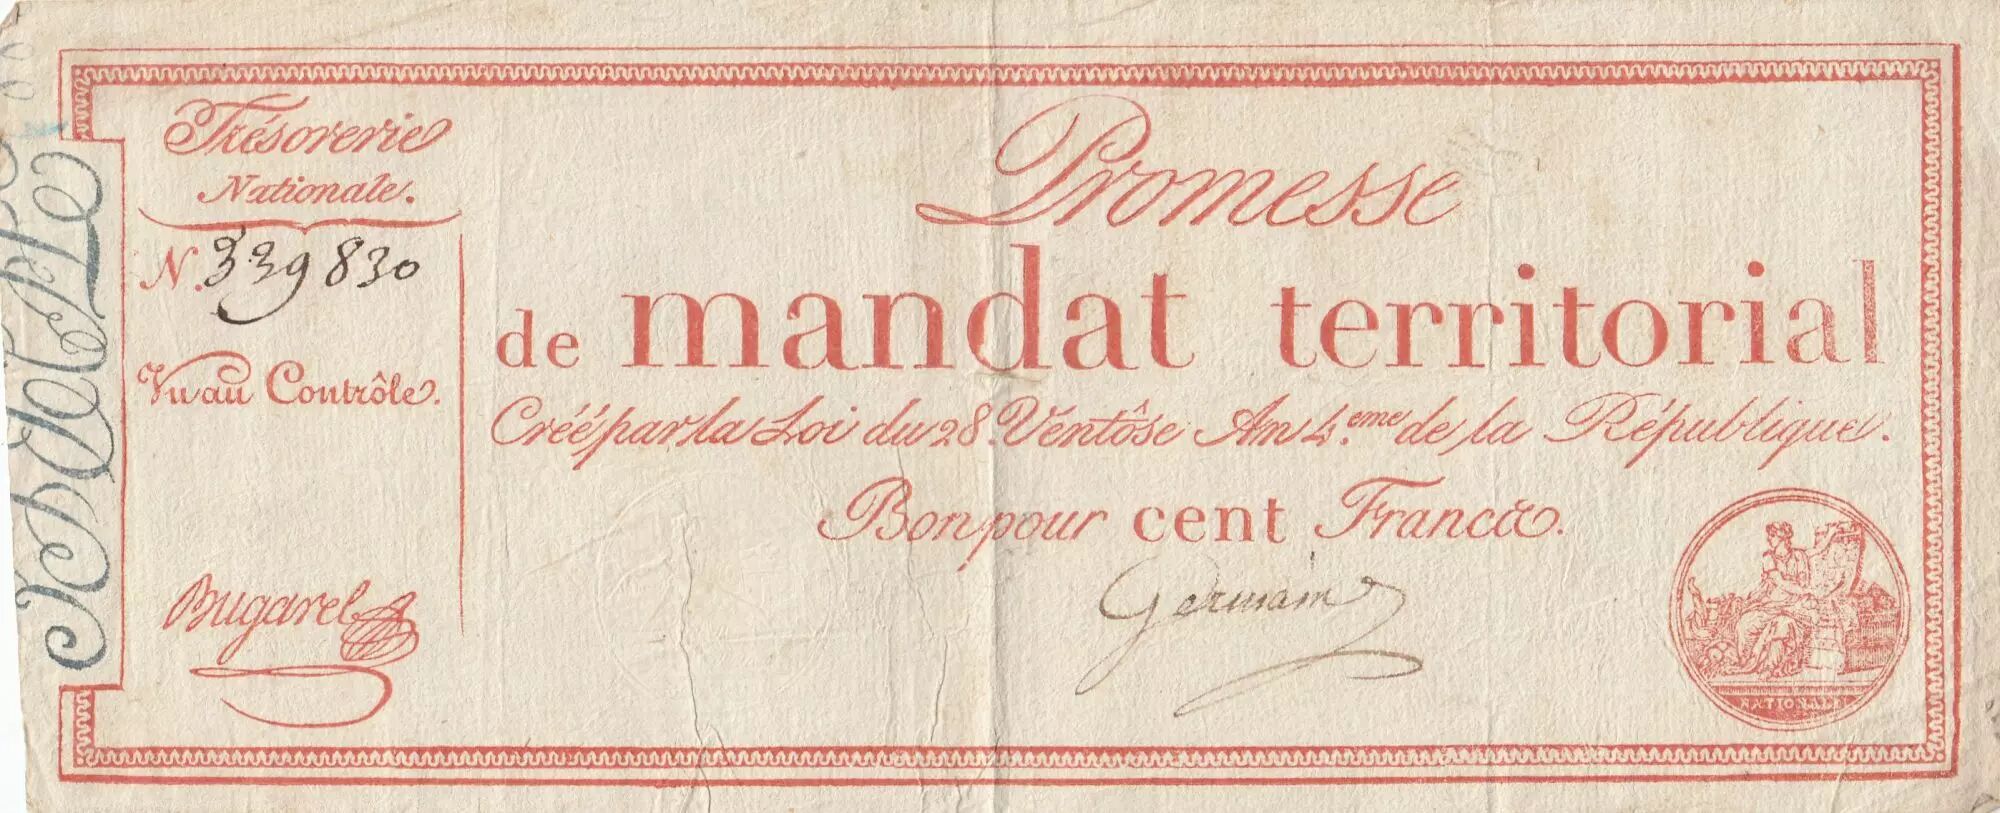 Trésorerie
Nationale.
N. 339830
Vu au Contrôle.
Bugarel
Promesse
de mandat territorial
Créé par la Loi du 28. Ventôse An 4.eme de la République.
Bon pour cent Francs.
Germain
NATIONALE